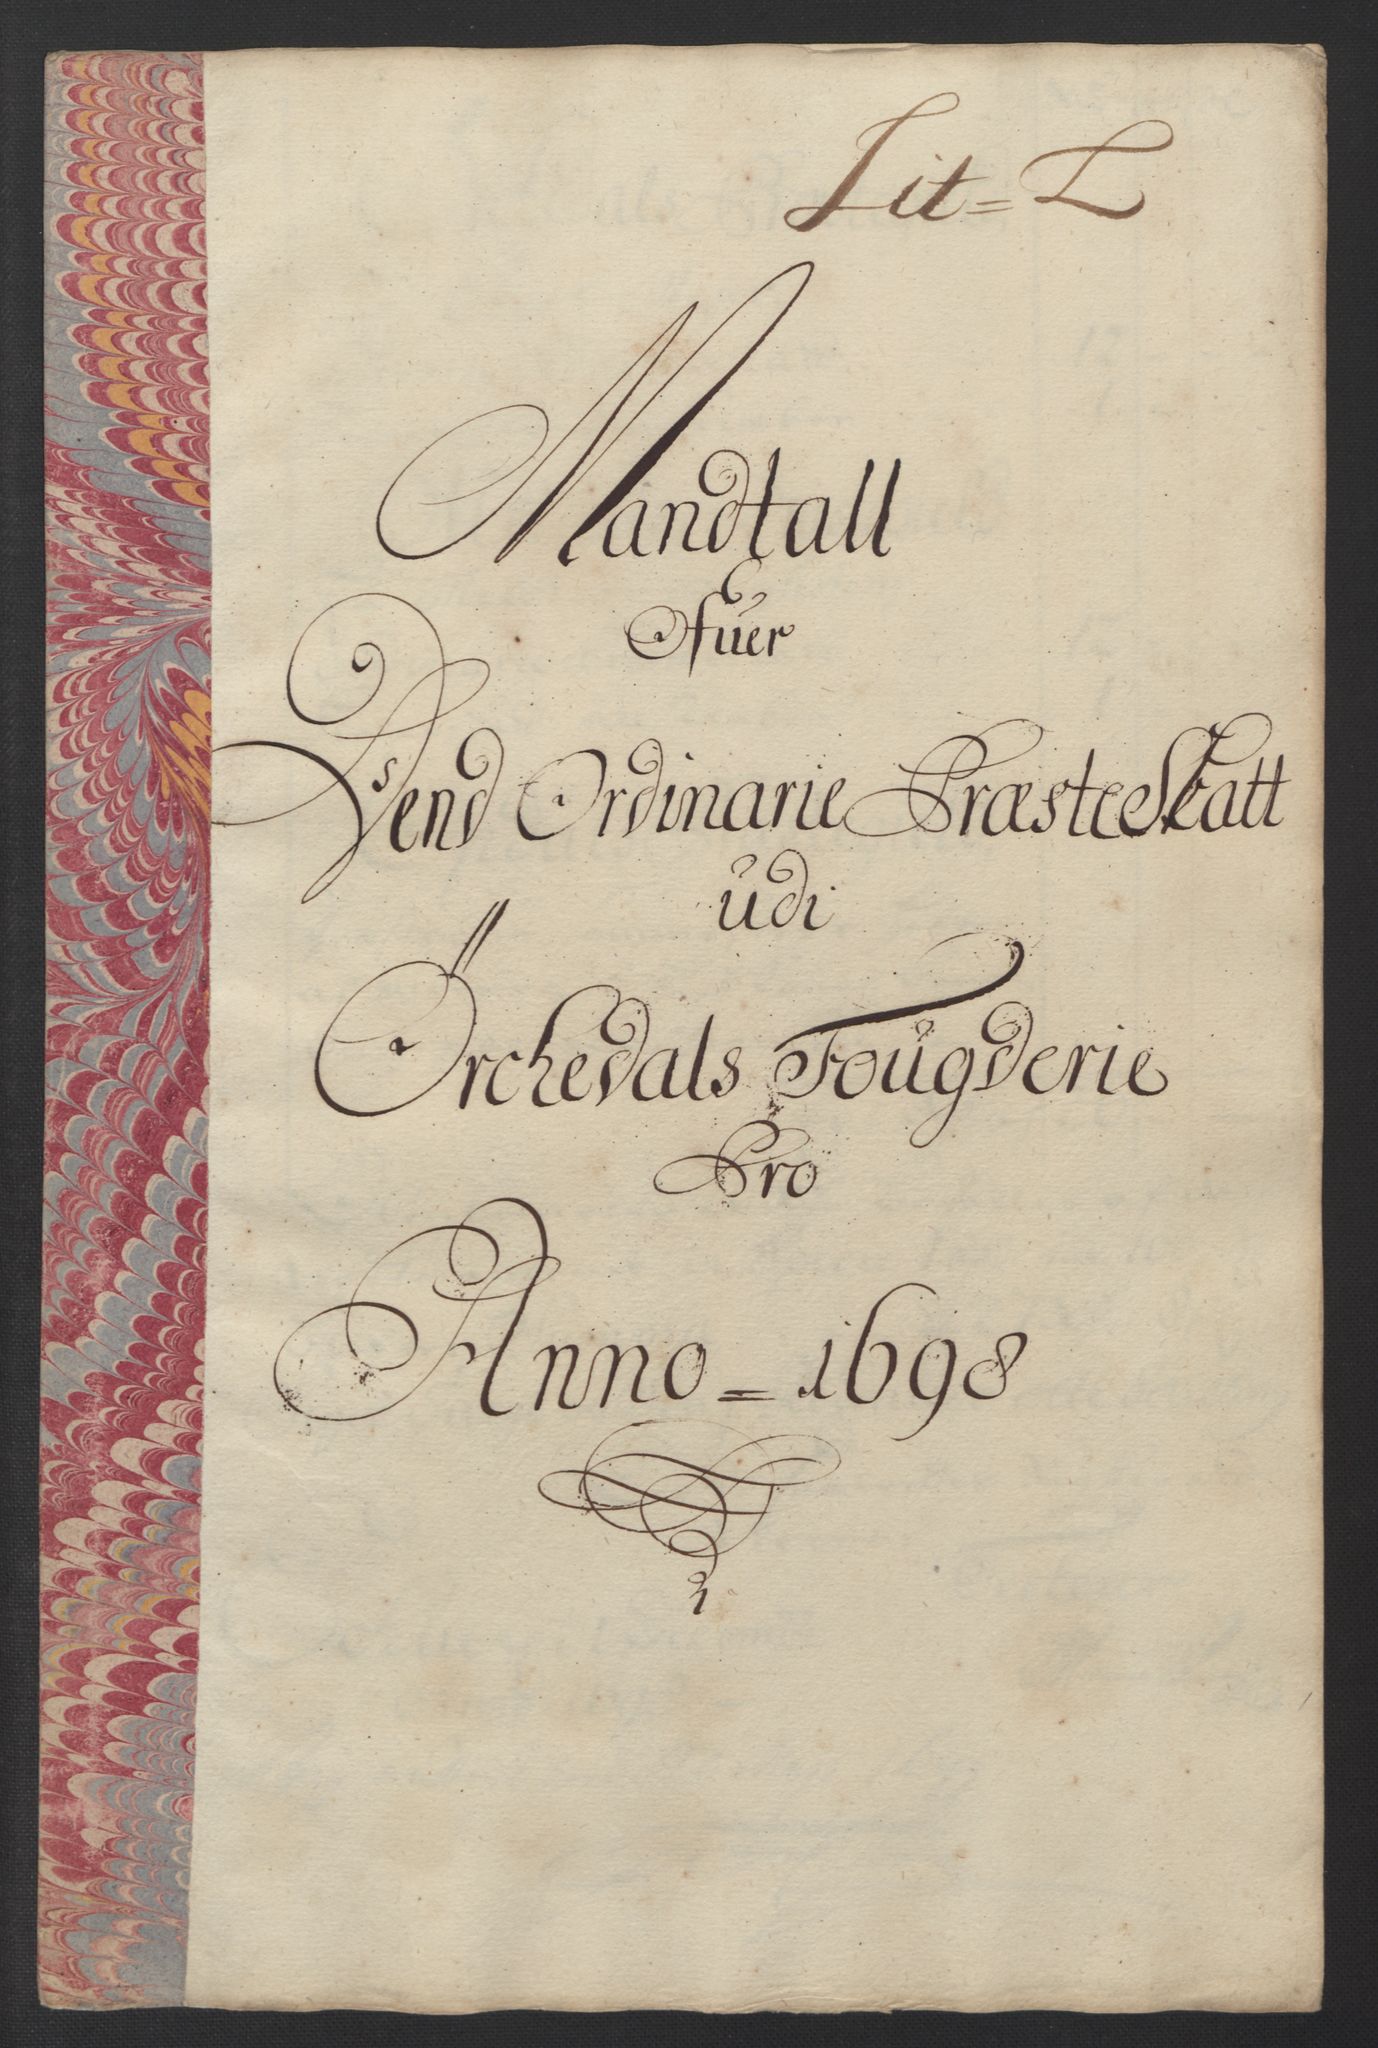 Lit= L
Mandtall
Ofuer
Dend Ordinarie Præste Skatt
udi
Örchedals Fougderie
Pro
Anno = 1698